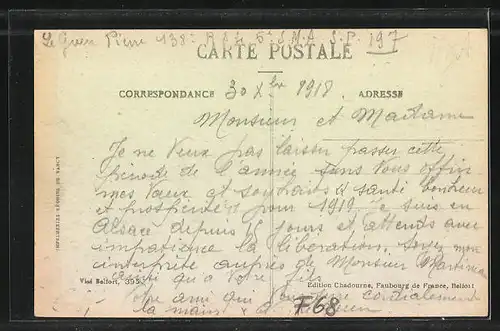 Le Guen Pierre 138e R.A.L. 5e S.M.A. S.P. 197
CARTE POSTALE
CORRESPONDANCE 30 Xbre 1918 ADRESSE
Monsieur et Madame
Je ne veux pas laisser passer cette
période de l'année sans vous offrir
mes vœux et souhaits de santé bonheur
et prospérité pour 1919. Je suis en
Alsace depuis 15 jours et attends avec
impatience la libération. Soyez mon
interprète auprès de Monsieur Martine
aussi qu'à votre fils
Visé Belfort, 395 Edition Chadourne, Faubourg de France, Belfort
Votre ami qui vous serre cordialement
la main
F68
IMPRIMERIES RÉUNIES DE NANCY